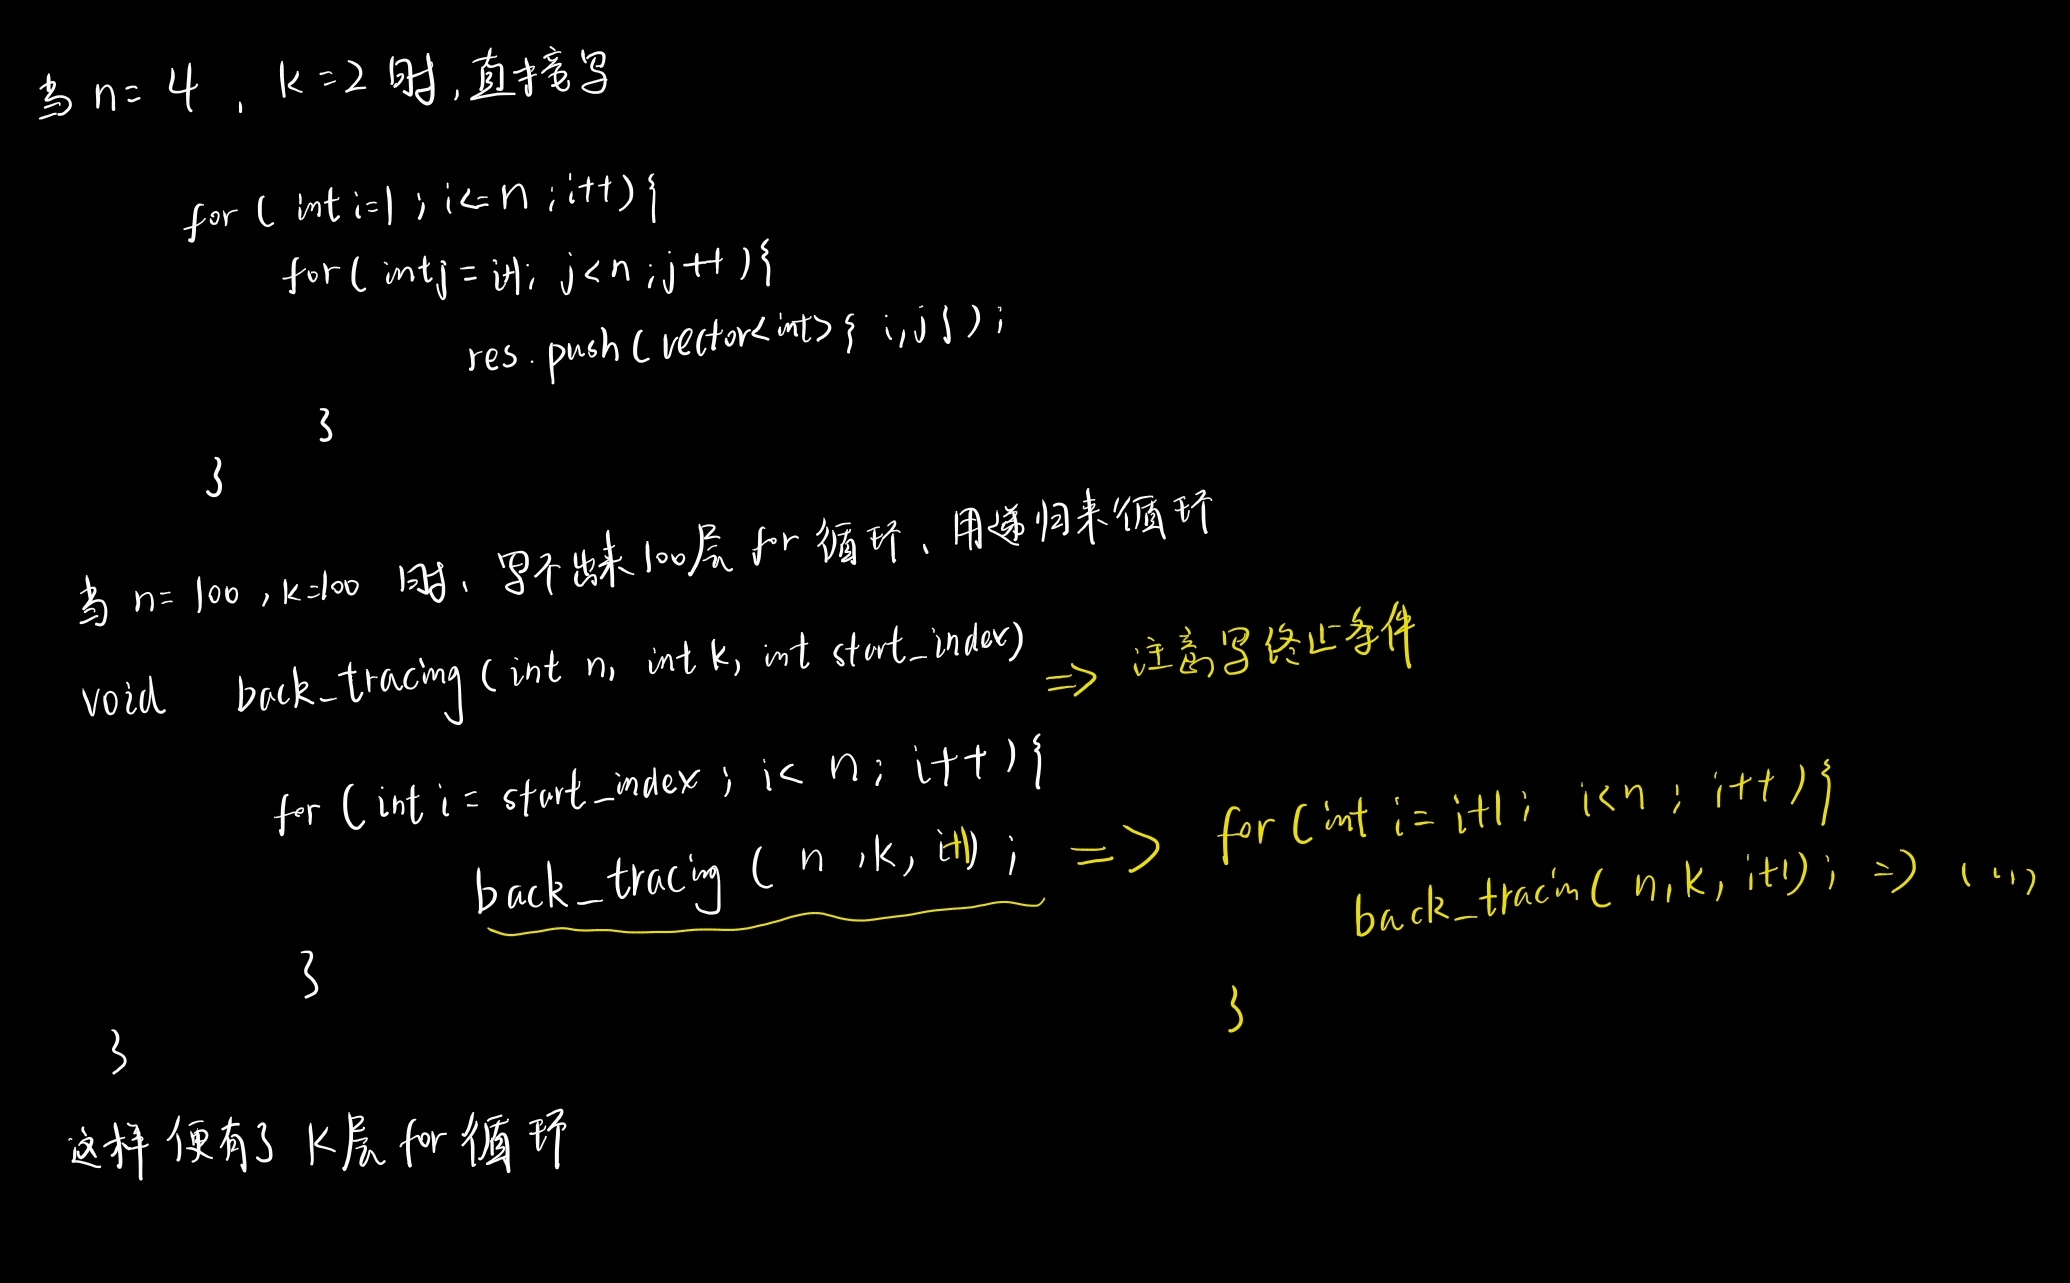 当 n = 4 , k = 2 时,直接写
for ( int i=1 ; i<=n ; i++){
for( int j = i+1; j<n ; j++ ){
res.push(vector<int>{ i,j } );
}
}
当 n=100 , k=100 时、写不出来100层 for 循环、用递归来循环
void back_tracing ( int n, int k, int start_index) => 注意写终止条件
for ( int i = start_index ; i< n ; i++ ){
back_tracing ( n , k, i+1) ; => for ( int i = i+1 ; i<n ; i++ ){
back_tracin( n, k, i+1) ; =>
}
}
}
这样便有了 K层 for 循环